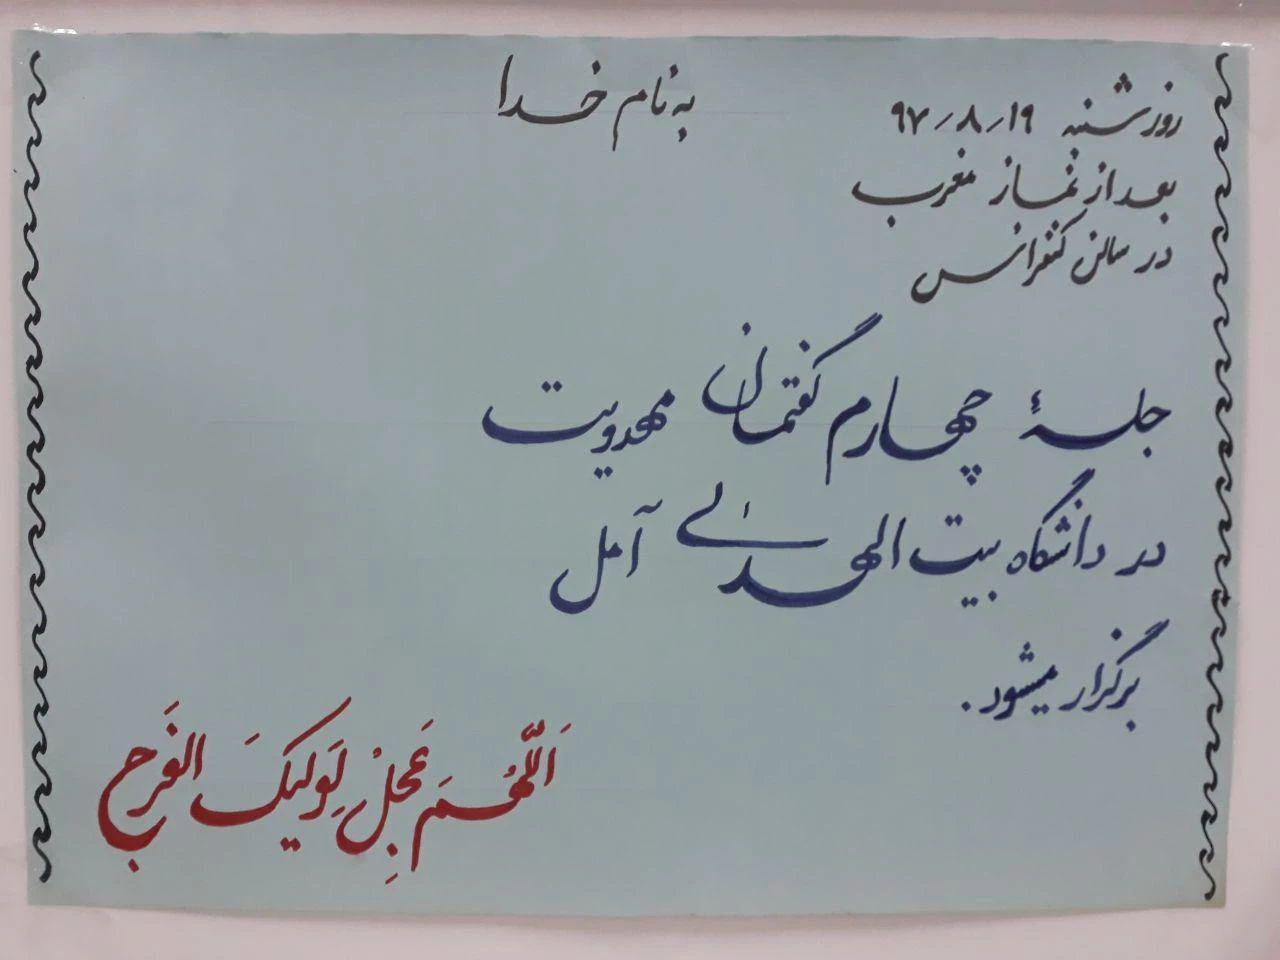 به نام خدا
روز شنبه ۹۷/۸/۱۹
بعد از نماز مغرب
در سالن کنفرانس
جلسهٔ چهارم گفتمان مهدویت
در دانشگاه بیت الهدیٰ آمل
برگزار میشود.
اَللّهُمَ عَجِلْ لِوَلیکَ الفَرَج